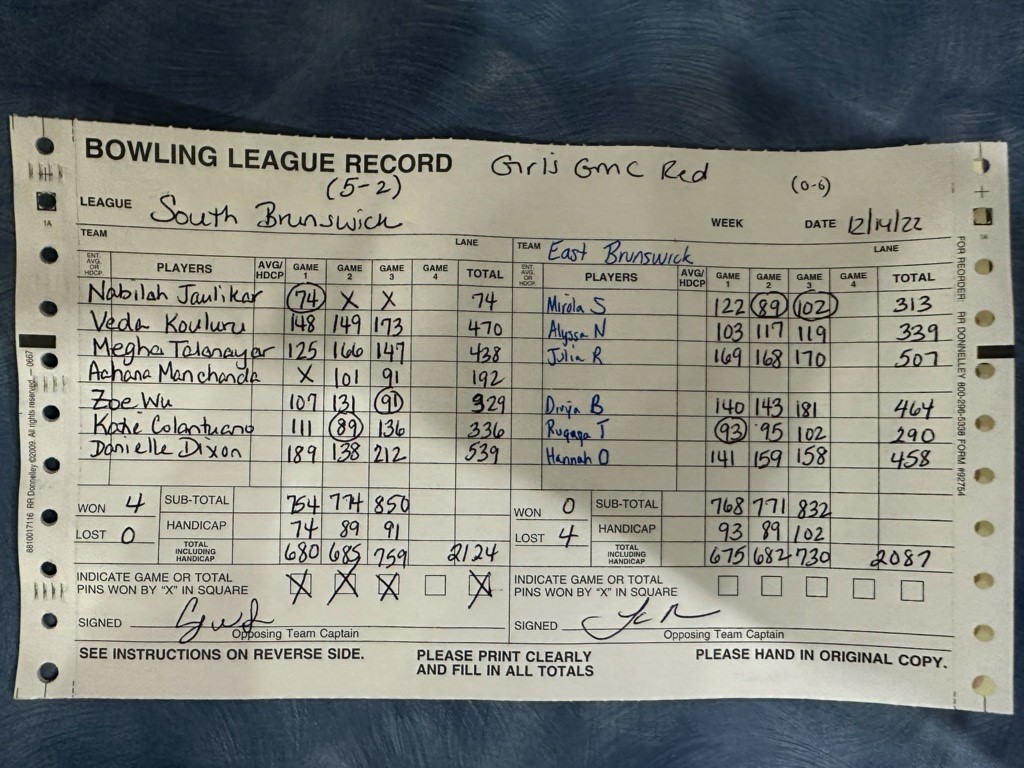 BOWLING LEAGUE RECORD Girls GMC Red
(5-2) (0-6)
LEAGUE South Brunswick WEEK DATE 12/14/22
TEAM LANE TEAM East Brunswick LANE
ENT. AVG. OR HDCP. PLAYERS AVG/HDCP GAME 1 GAME 2 GAME 3 GAME 4 TOTAL ENT. AVG. OR HDCP. PLAYERS AVG/HDCP GAME 1 GAME 2 GAME 3 GAME 4 TOTAL
Nabilah Jaulikar 74 X X 74 Mirola S 122 89 102 313
Veda Kouluru 148 149 173 470 Alyssa N 103 117 119 339
Megha Talanayar 125 166 147 438 Julia R 169 168 170 507
Achana Manchanda X 101 91 192
Zoe Wu 107 131 91 329 Divja B 140 143 181 464
Katie Colantuano 111 89 136 336 T 93 95 102 290
Danielle Dixon 189 138 212 539 Hannah O 141 159 158 458
WON 4 SUB-TOTAL 754 774 850 WON 0 SUB-TOTAL 768 771 832
LOST 0 HANDICAP 74 89 91 LOST 4 HANDICAP 93 89 102
TOTAL INCLUDING HANDICAP 680 685 759 2124 TOTAL INCLUDING HANDICAP 675 682 730 2087
INDICATE GAME OR TOTAL PINS WON BY "X" IN SQUARE X X X X INDICATE GAME OR TOTAL PINS WON BY "X" IN SQUARE
SIGNED SIGNED
Opposing Team Captain Opposing Team Captain
SEE INSTRUCTIONS ON REVERSE SIDE. PLEASE PRINT CLEARLY AND FILL IN ALL TOTALS PLEASE HAND IN ORIGINAL COPY.
8810017116 RR Donnelley ©2009. All rights reserved. — 0667
1A
FOR REORDER: RR DONNELLEY 800-296-5338 FORM #92754